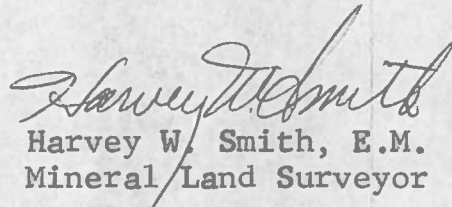 Harvey W. Smith
Harvey W. Smith, E.M.
Mineral Land Surveyor